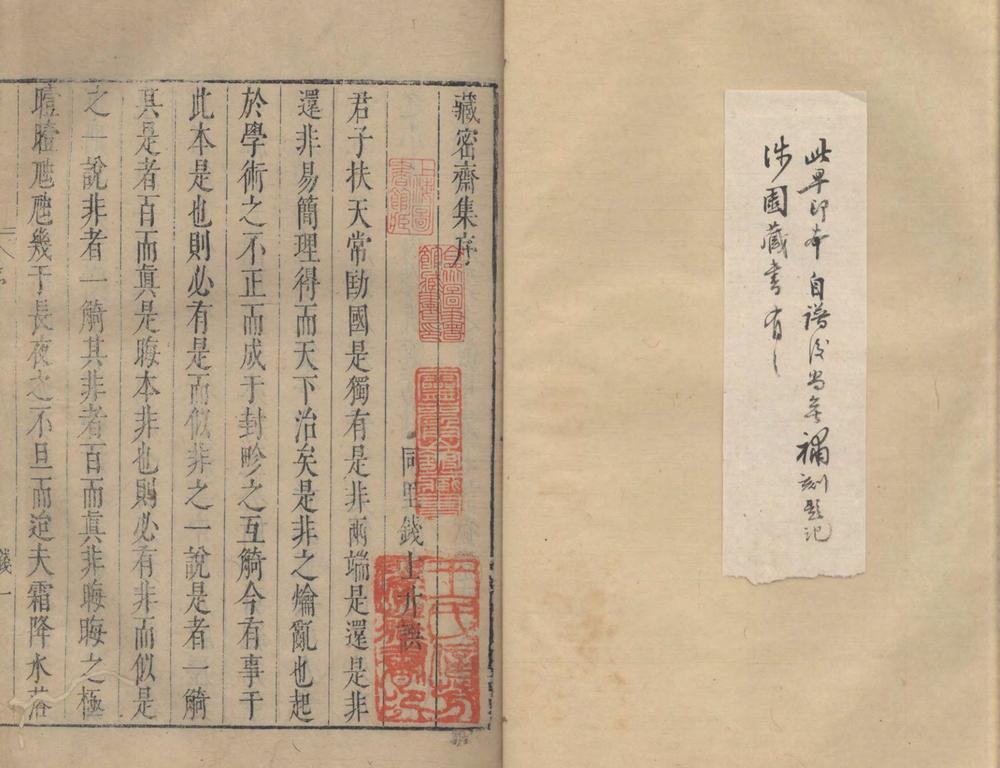 此早印本自譜後尚無補刻題記
涉園藏書有之
藏密齋集序
同里錢士升譔
君子扶天常勖國是獨有是非兩端是還是非
還非易簡理得而天下治矣是非之爚亂也起
於學術之不正而成于封畛之互觭今有事于
此本是也則必有是而似非之一說是者一觭
其是者百而真是晦本非也則必有非而似是
之一說非者一觭其非者百而真非晦晦之極
曀曀虺虺幾于長夜之不旦而迨夫霜降水落
上海圖書館藏
靈壽館藏書
王氏信芳